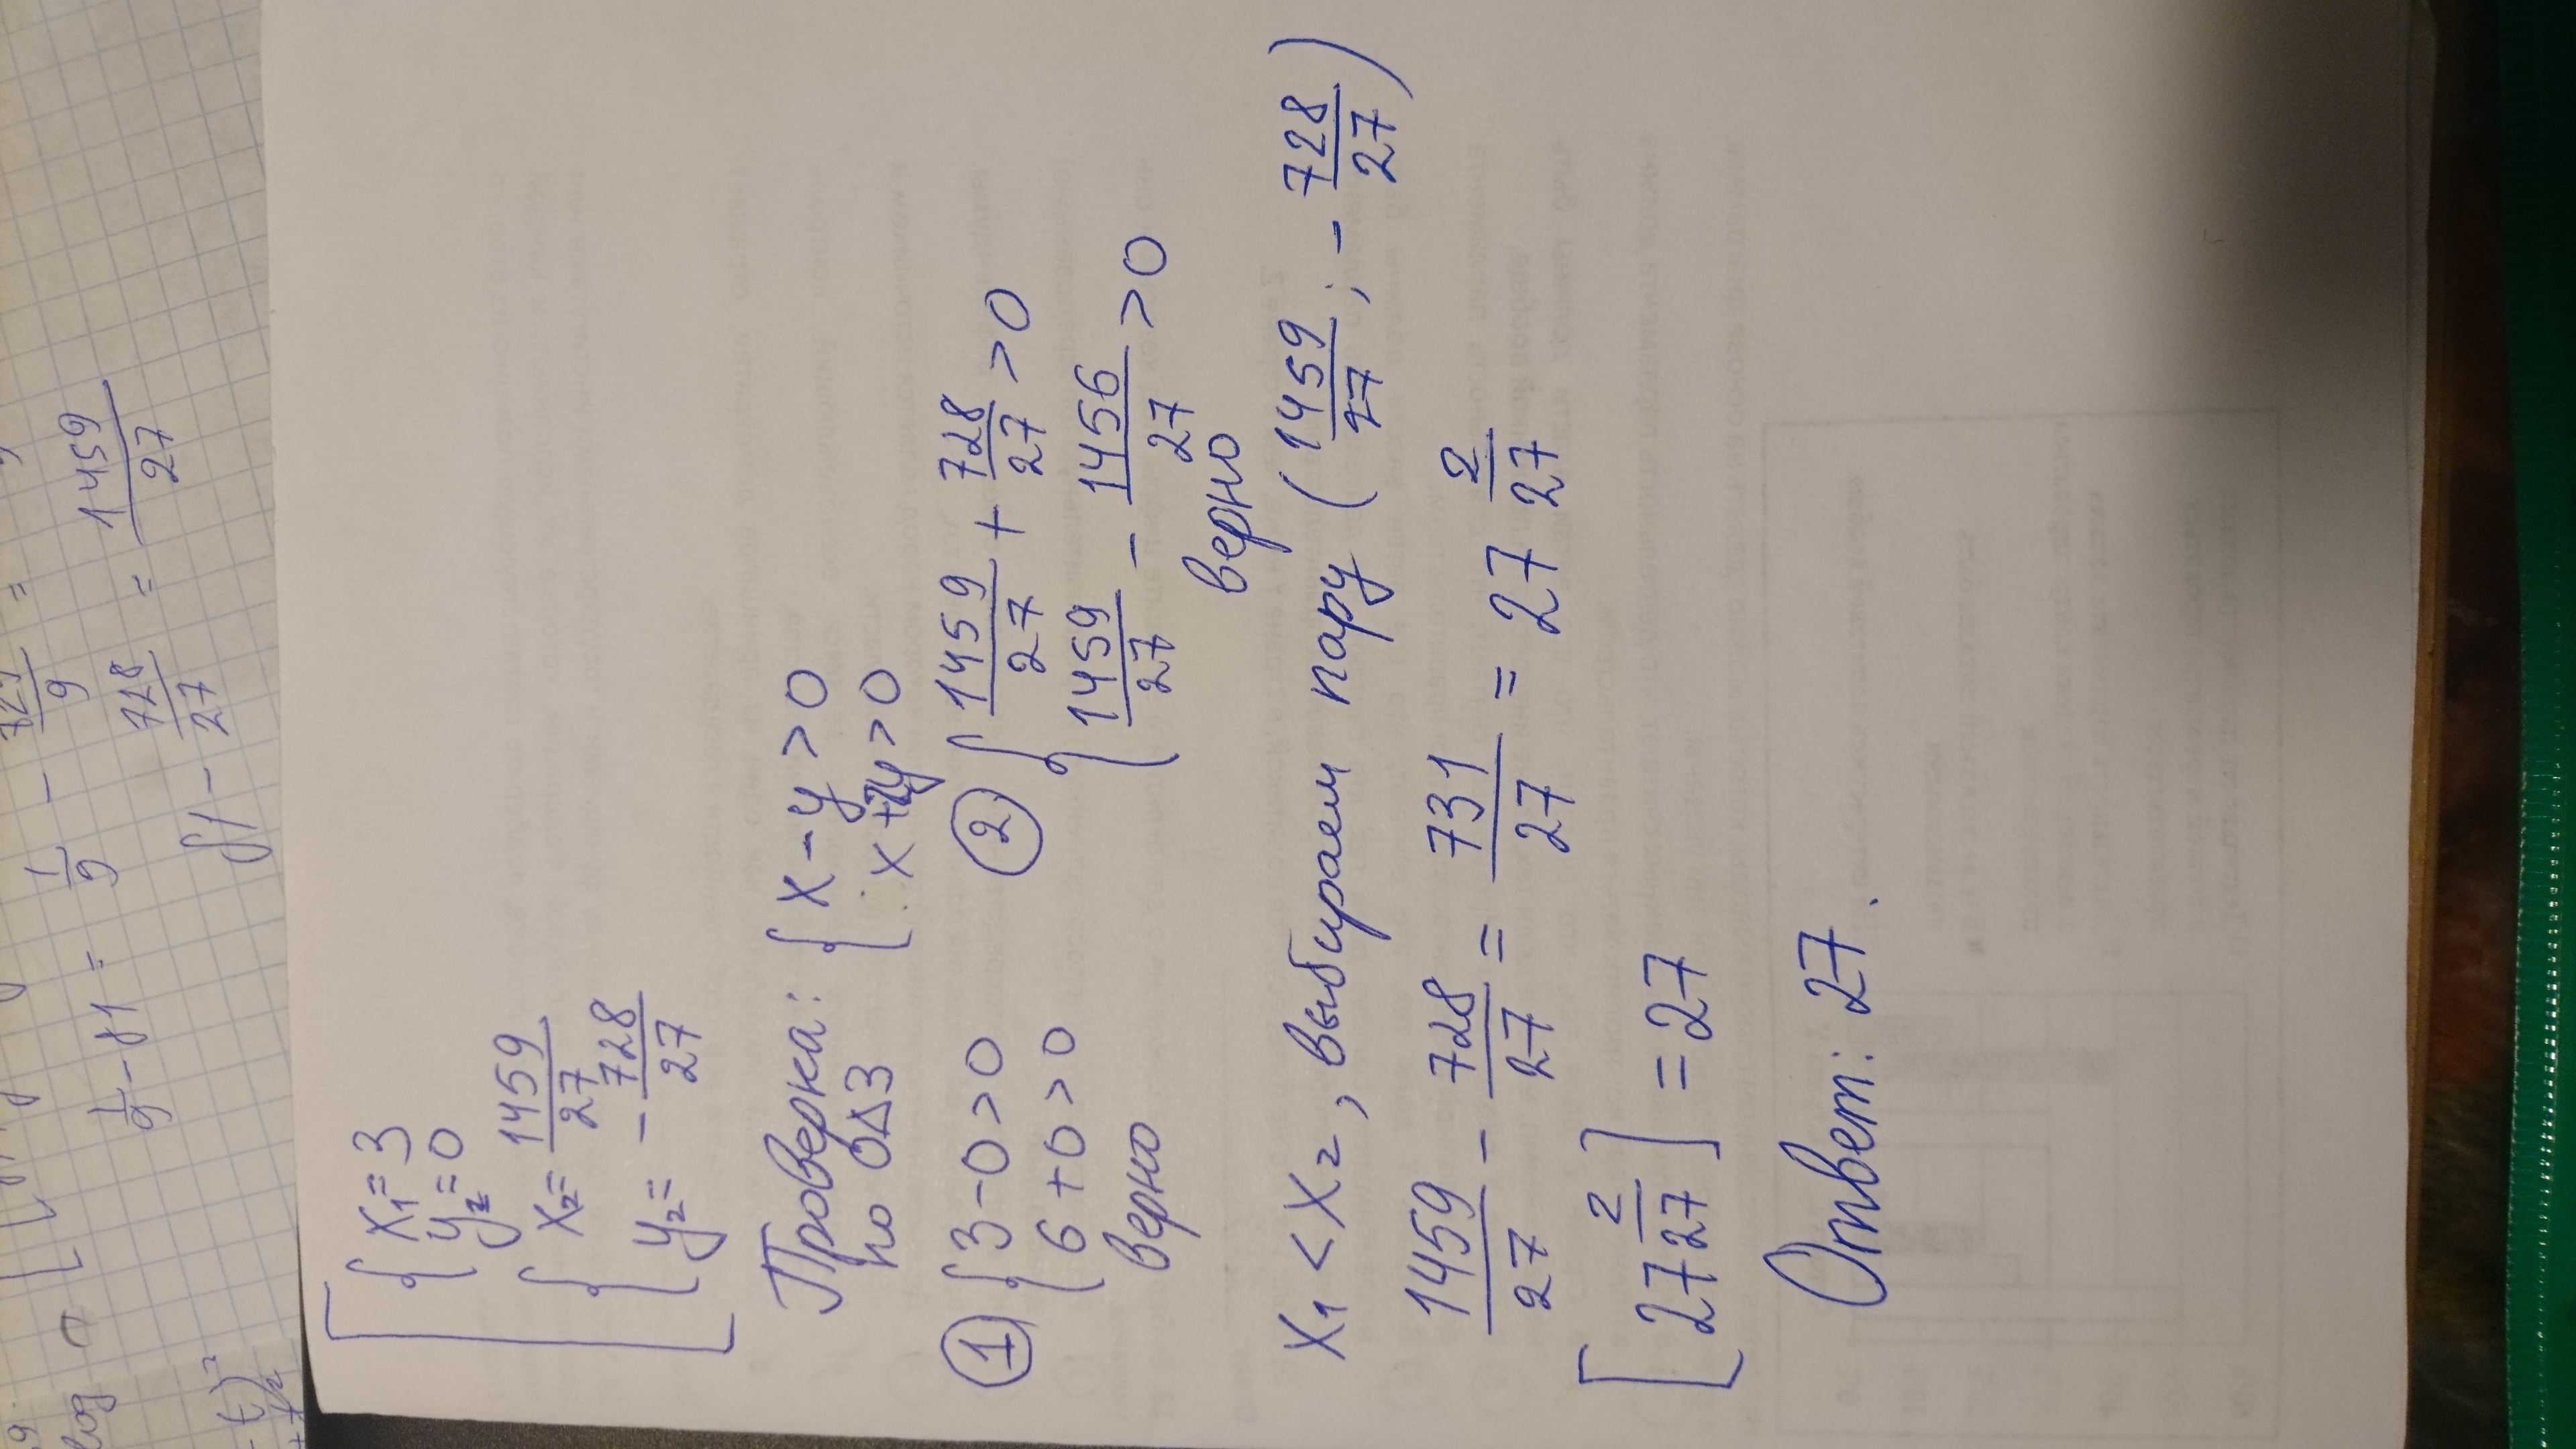 1/9 - 81 =
81 - 728/27 = 1459/27
[ { x₁=3
y₂=0
{ x₂= 1459/27
y₂= - 728/27
Проверка: { x-y>0
по ОДЗ x+2y>0
① { 3-0>0
6+0>0
верно
② { 1459/27 + 728/27 >0
1459/27 - 1456/27 >0
верно
x₁ < x₂, выбираем пару (1459/27 ; - 728/27)
1459/27 - 728/27 = 731/27 = 27 2/27
[27 2/27] = 27
Ответ: 27.